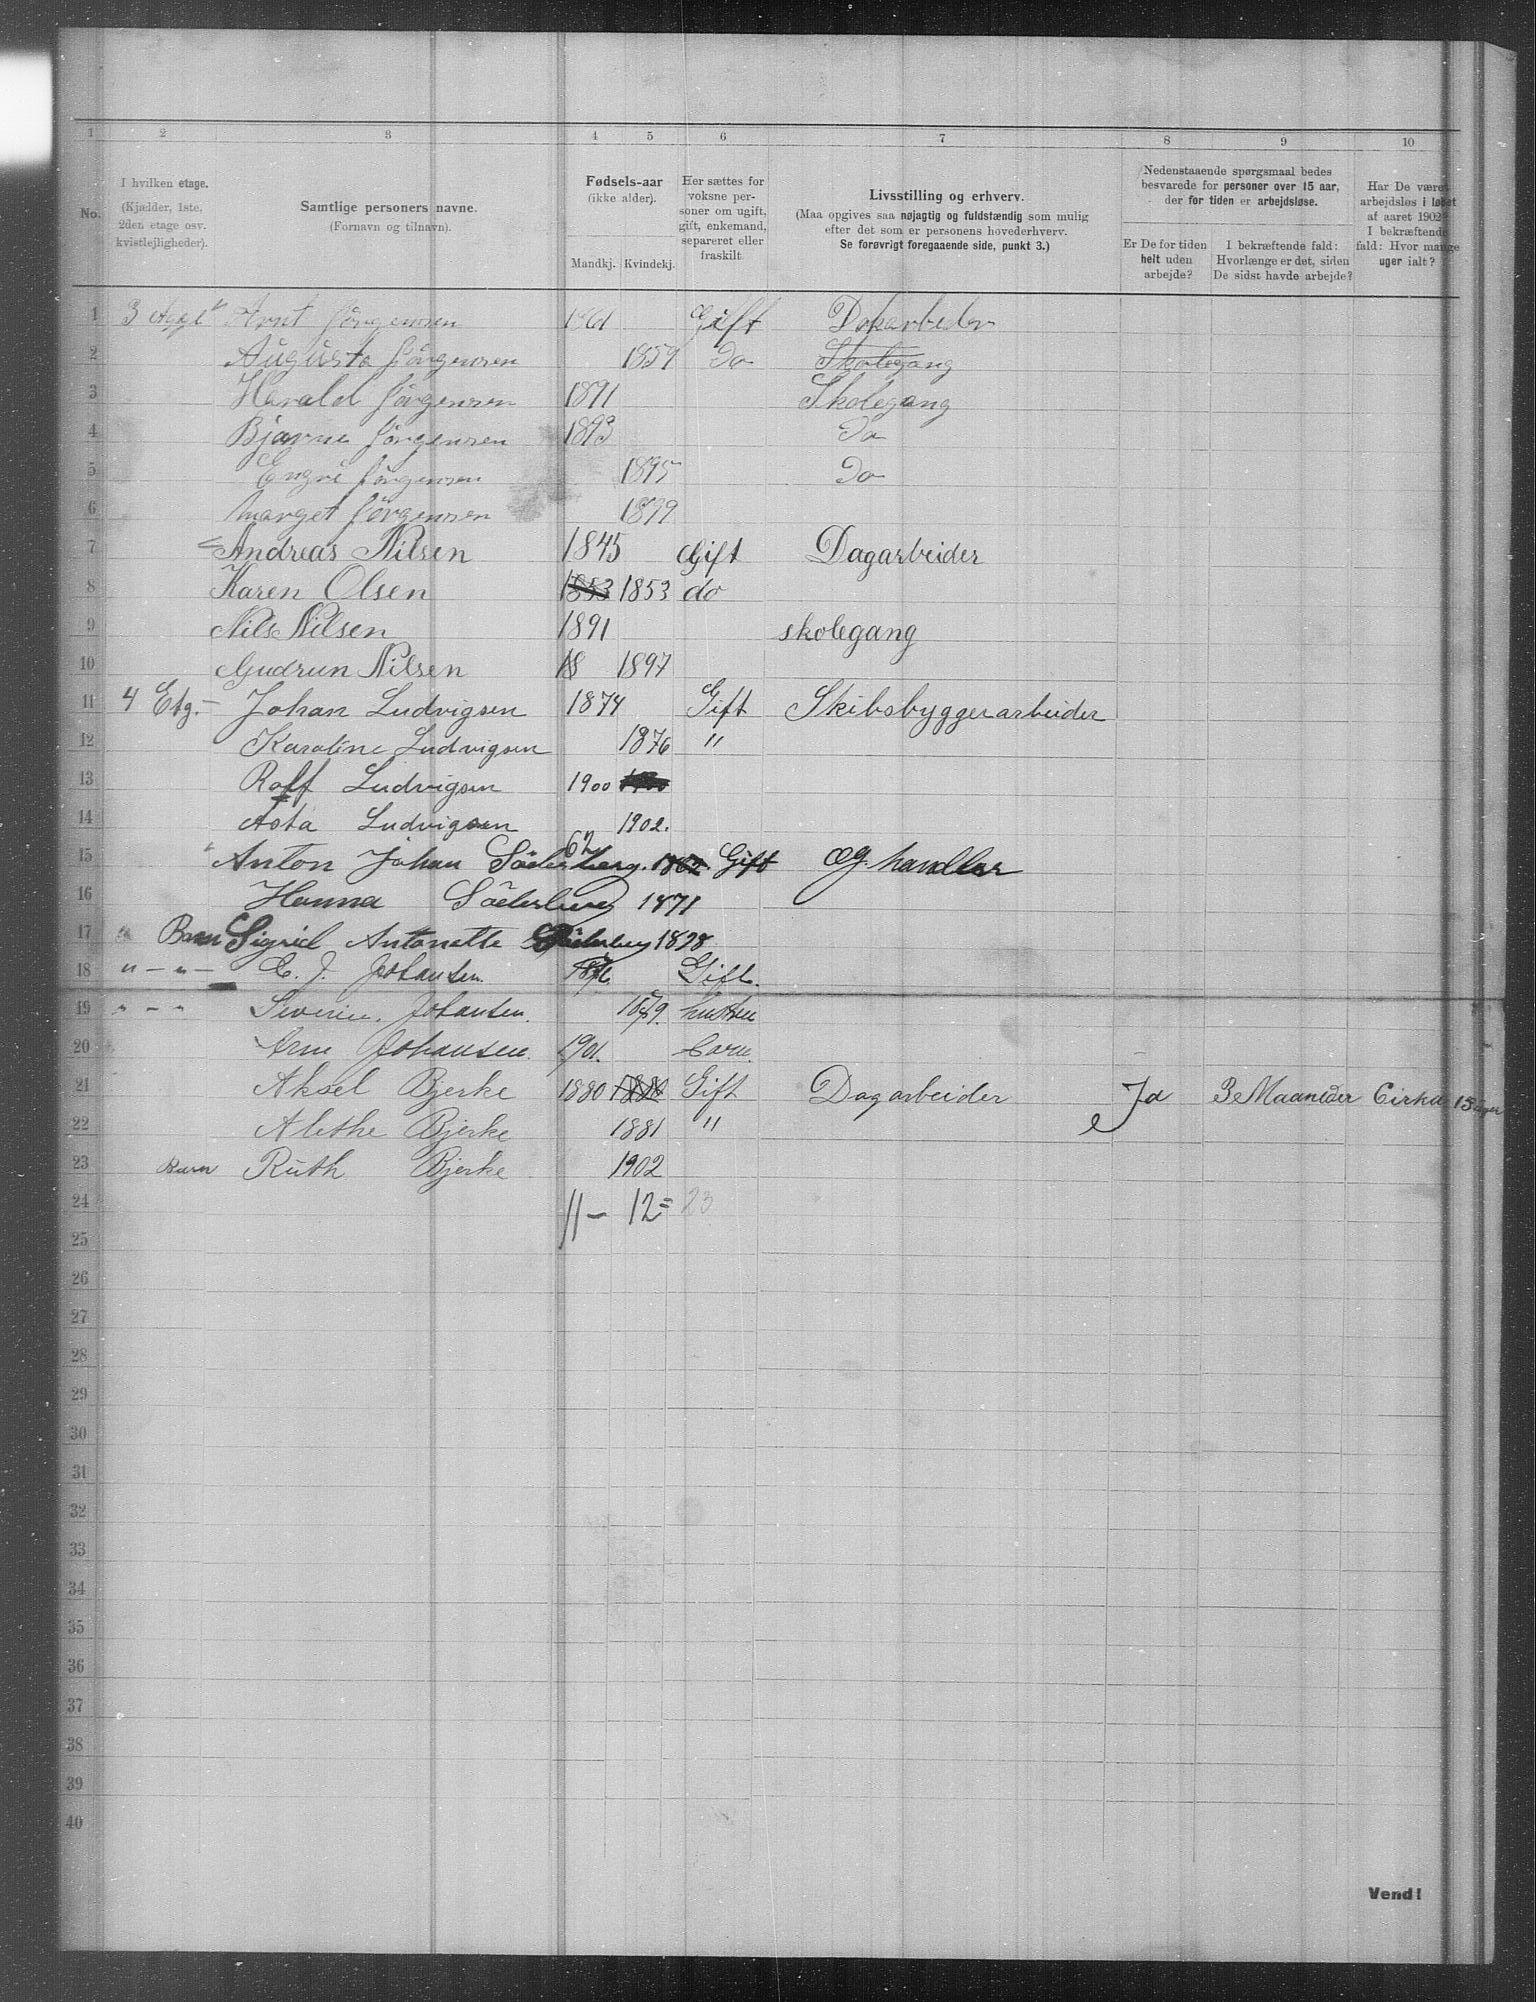 1 2 3 4 5 6 7 8 9 10
No.
I hvilken etage.
(Kjælder, 1ste,
2den etage osv.
kvistlejligheder).
Samtlige personers navne.
(Fornavn og tilnavn).
Fødsels-aar
(ikke alder).
Mandkj. Kvindekj.
Her sættes for
voksne per-
soner om ugift,
gift, enkemand,
separeret eller
fraskilt
Livsstilling og erhverv.
(Maa opgives saa nøjagtig og fuldstændig som mulig
efter det som er personens hovederhverv.
Se forøvrigt foregaaende side, punkt 3.)
Nedenstaaende spørgsmaal bedes
besvarede for personer over 15 aar,
der for tiden er arbejdsløse.
Er De for tiden
helt uden
arbejde?
I bekræftende fald:
Hvorlænge er det, siden
De sidst havde arbejde?
Har De været
arbejdsløs i løbet
af aaret 1902?
I bekræftende
fald: Hvor mange
uger ialt?
1 3 Arnt Jörgensen 1861 Gift Dokarbeder
2 Augusta Jörgensen 1859 Do Skolegang
3 Harald Jörgensen 1891 Skolegang
4 Bjarne Jörgensen 1893 Do
5 Engri Jörgensen 1895 Do
6 Marget Jörgensen 1899
7 Andreas Nilsen 1845 Gift Dagarbeider
8 Karen Olsen 1853 1853 do
9 Nils Nilsen 1891 skolegang
10 Gudrun Nilsen 18 1897
11 4 Etg. - Johan Ludvigsen 1874 Gift Skibsbyggerarbeider
12 Karoline Ludvigsen 1876 "
13 Rolf Ludvigsen 1900
14 Asta Ludvigsen 1902.
15 Anton Johan Söderberg. 62 1862 Gift æg. handler
16 Hanna Söderberg 1871
17 Barn Sigrid Antonette Söderberg 1898
18 " - " - C. J. Johansen. 1876 Gift.
19 " - " Severine Johansen. 1879. hustru
20 Arne Johansen. 1901. barn.
21 Aksel Bjerke 1880 1880 Gift Dagarbeider Ja 3 Maaneder Cirka 15 uger
22 Alethe Bjerke 1881 "
23 Barn Ruth Bjerke 1902
24 11 - 12 = 23
25
26
27
28
29
30
31
32
33
34
35
36
37
38
39
40
Vend!